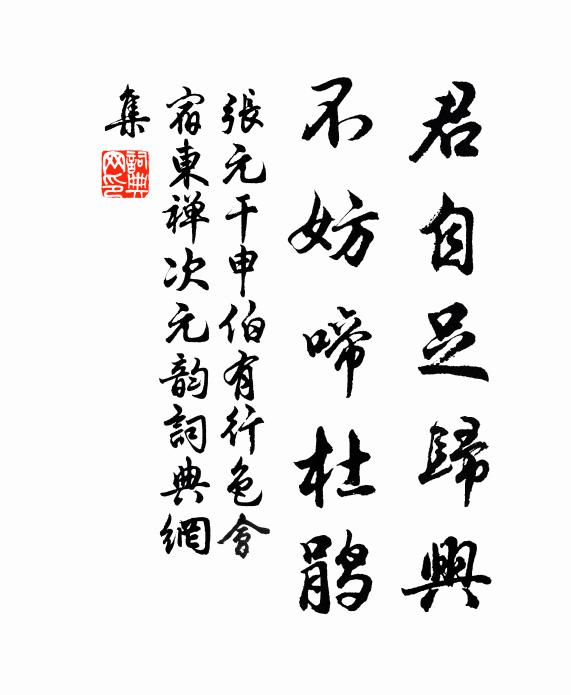 君自足歸興
不妨啼杜鹃
張元干申伯有行色會
宿東禅次元韵詞典網
集
詞典
网印